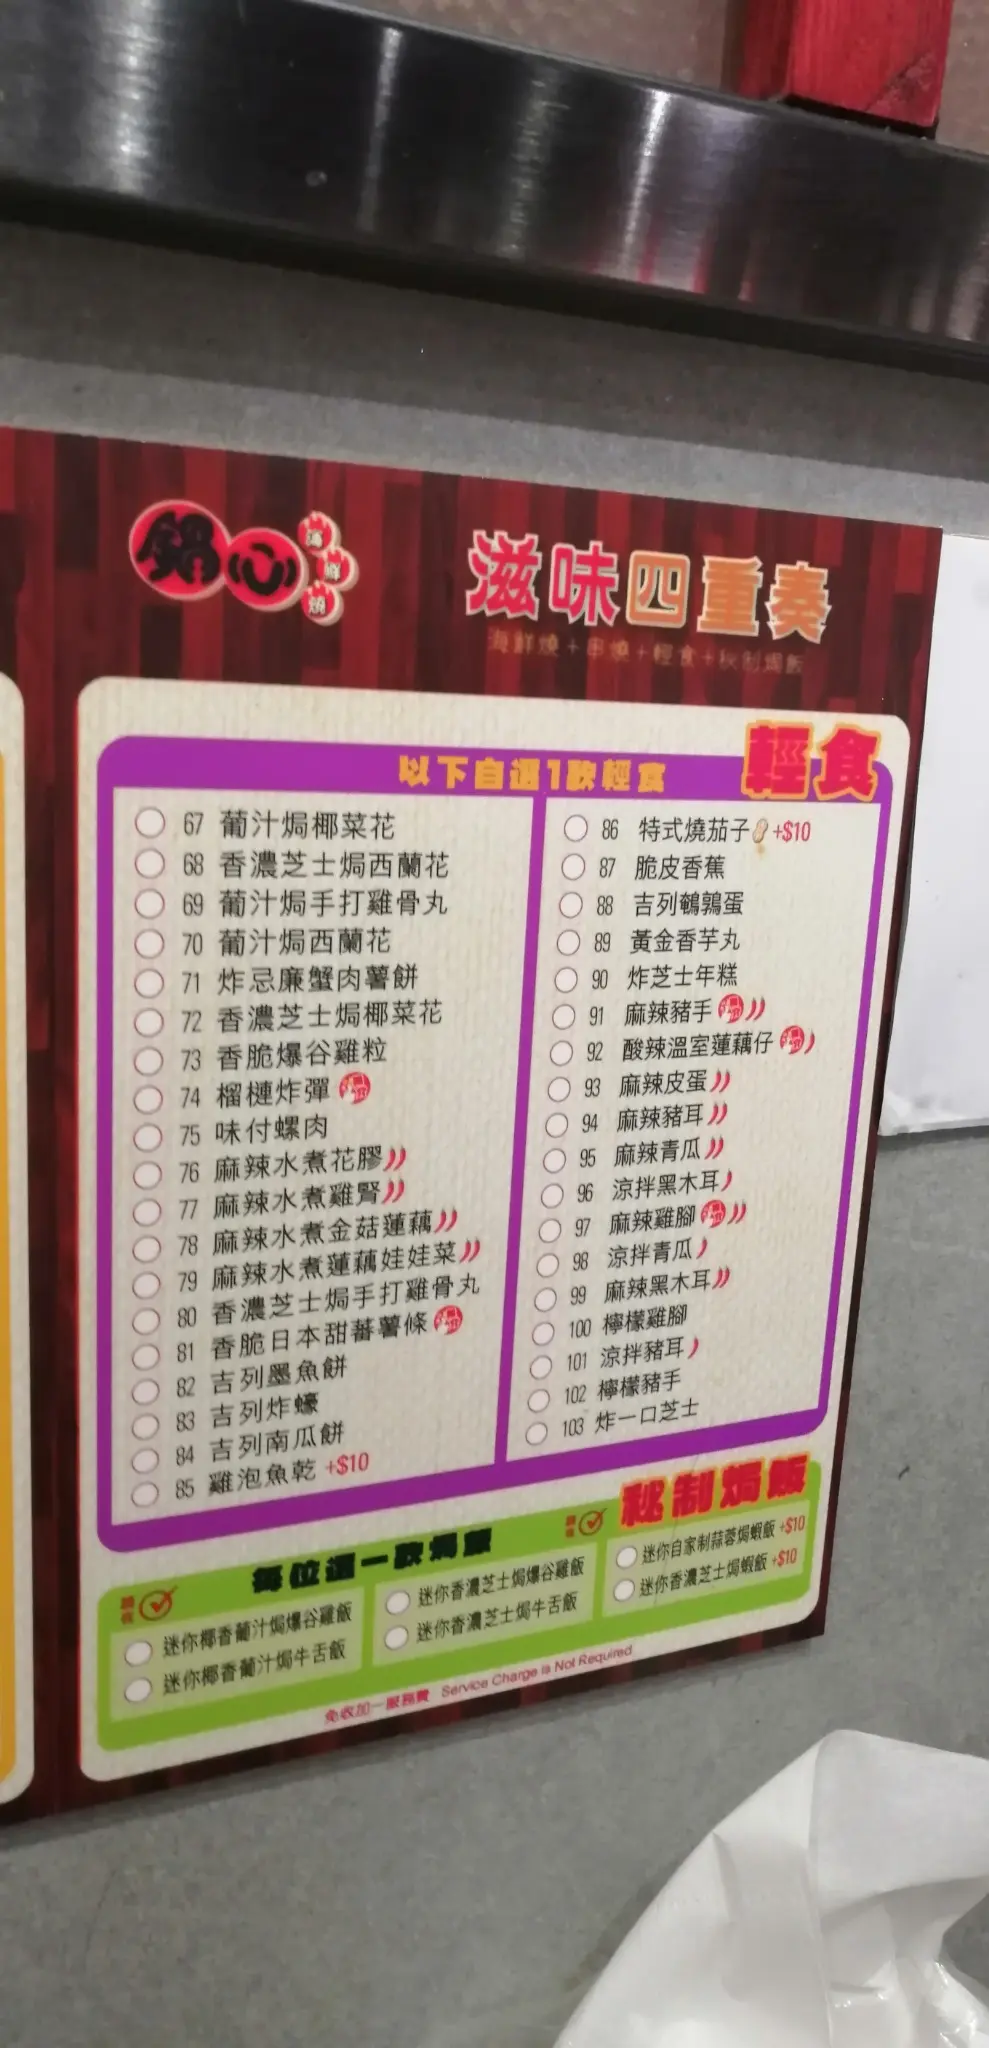 鍋心
海鮮燒
滋味四重奏
海鮮燒+串燒+輕食+秋制焗飯
輕食
以下自選1款輕食
67 葡汁焗椰菜花
68 香濃芝士焗西蘭花
69 葡汁焗手打雞骨丸
70 葡汁焗西蘭花
71 炸忌廉蟹肉薯餅
72 香濃芝士焗椰菜花
73 香脆爆谷雞粒
74 榴槤炸彈
75 味付螺肉
76 麻辣水煮花膠
77 麻辣水煮雞腎
78 麻辣水煮金菇蓮藕
79 麻辣水煮蓮藕娃娃菜
80 香濃芝士焗手打雞骨丸
81 香脆日本甜蕃薯條
82 吉列墨魚餅
83 吉列炸蠔
84 吉列南瓜餅
85 雞泡魚乾 +$10
86 特式燒茄子 +$10
87 脆皮香蕉
88 吉列鵪鶉蛋
89 黃金香芋丸
90 炸芝士年糕
91 麻辣豬手
92 酸辣溫室蓮藕仔
93 麻辣皮蛋
94 麻辣豬耳
95 麻辣青瓜
96 涼拌黑木耳
97 麻辣雞腳
98 涼拌青瓜
99 麻辣黑木耳
100 檸檬雞腳
101 涼拌豬耳
102 檸檬豬手
103 炸一口芝士
秘制焗飯
每位選一款焗飯
迷你椰香葡汁焗爆谷雞飯
迷你椰香葡汁焗牛舌飯
迷你香濃芝士焗爆谷雞飯
迷你香濃芝士焗牛舌飯
迷你自家制蒜蓉焗蝦飯 +$10
迷你香濃芝士焗蝦飯 +$10
免收加一服務費 Service Charge is Not Required